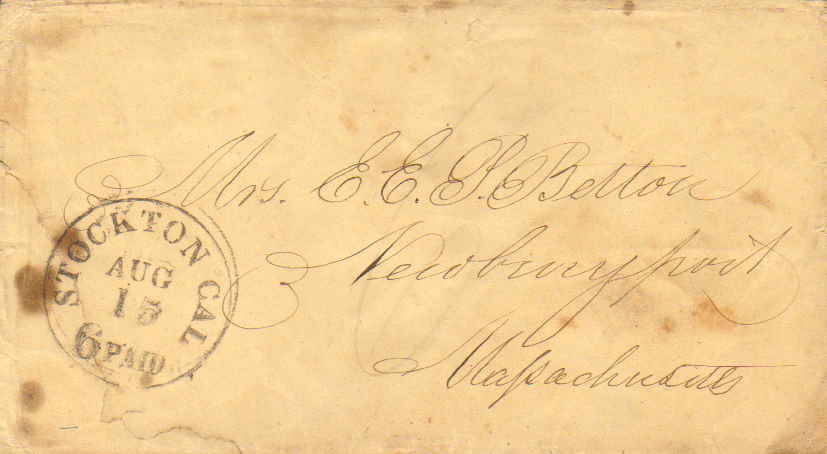 Mrs. E. E. P. Betton
Newburyport
Massachusetts
STOCKTON CAL
AUG
15
6 PAID